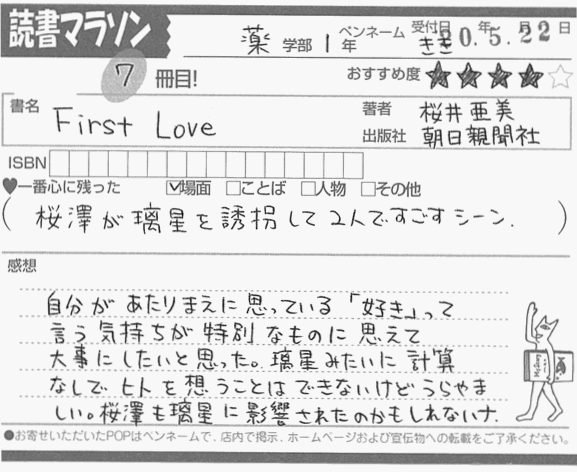 読書マラソン
薬 学部 1 年 ペンネーム きき 受付日 20.5.22 年 月 日
7 冊目! おすすめ度 ★★★★☆
書名 First Love
著者 桜井亜美
出版社 朝日新聞社
ISBN
♥一番心に残った ☑場面 □ことば □人物 □その他
(桜澤が璃星を誘拐して2人ですごすシーン.)
感想
自分があたりまえに思っている「好き」って
言う気持ちが特別なものに思えて
大事にしたいと思った。璃星みたいに計算
なしでヒトを想うことはできないけどうらやま
しい。桜澤も璃星に影響されたのかもしれないナ.
●お寄せいただいたPOPはペンネームで、店内で掲示、ホームページおよび宣伝物への転載をご了承ください。